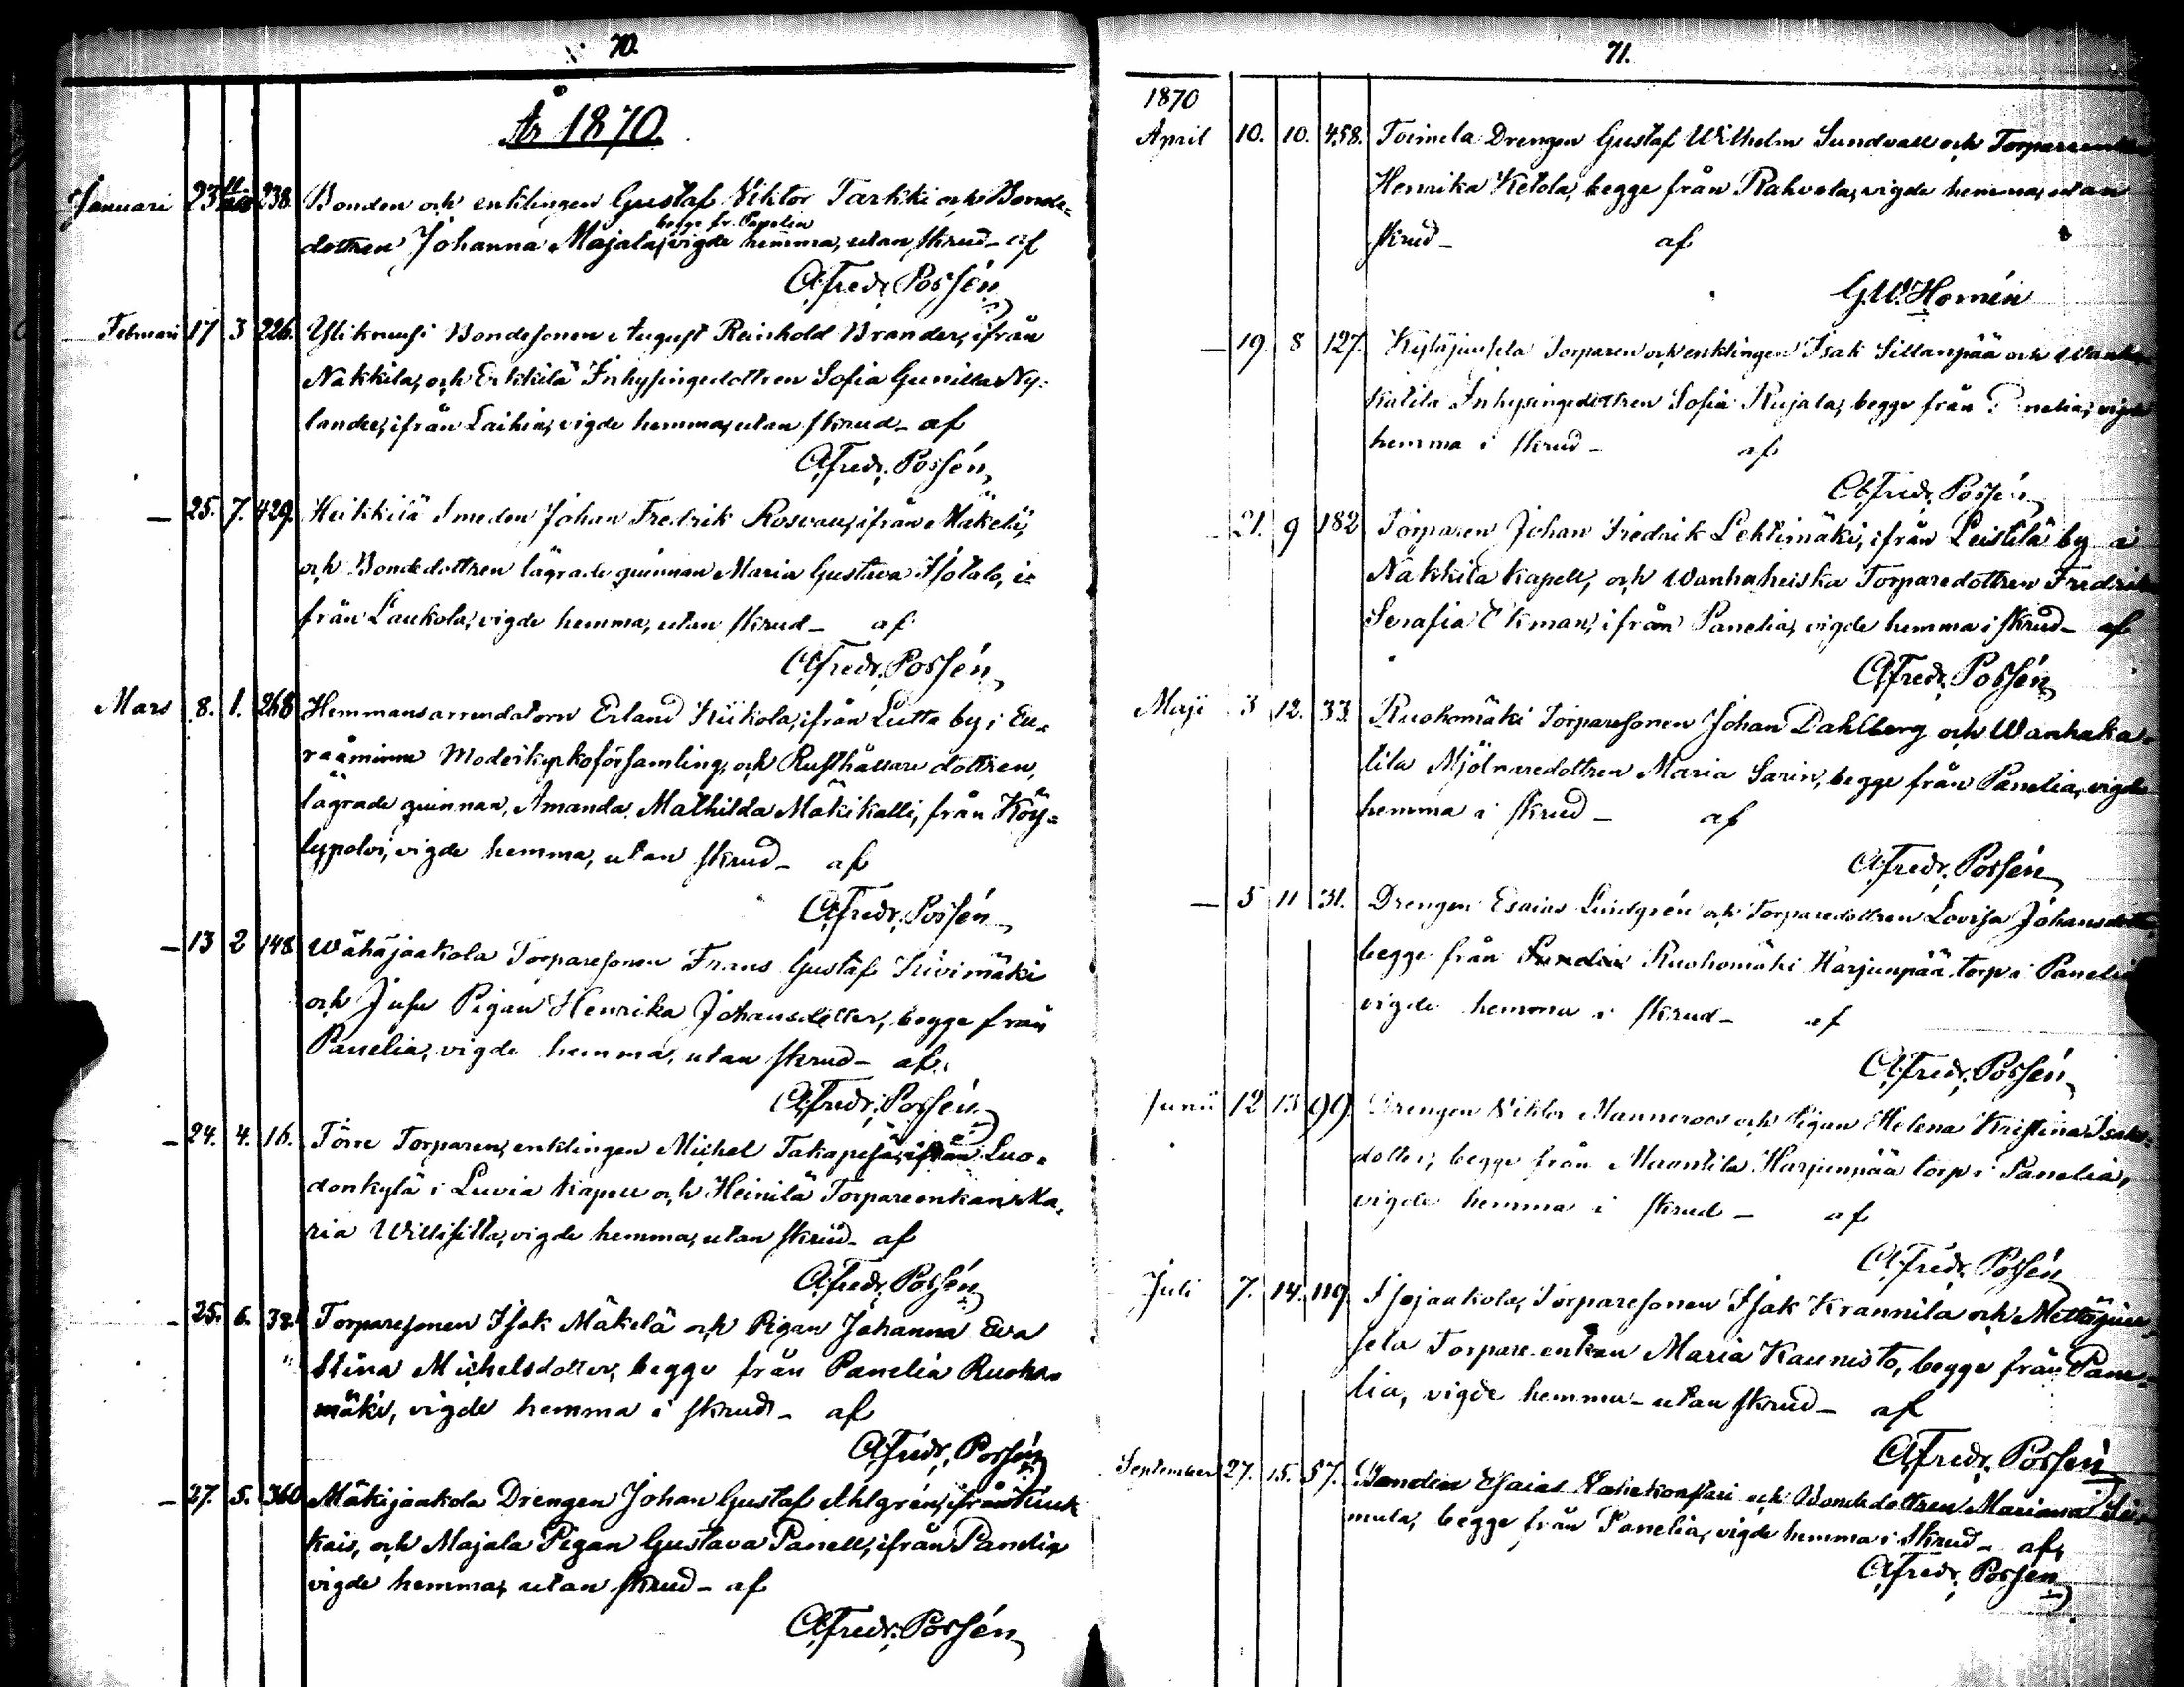 70.
År 1870.
Januari 23 11 238. Bonden och enklingen Gustaf Viktor Tarkki och Bonde-
begge fr. Panelia
dottren Johanna Majala, vigde hemma, utan skrud _ af
A. Fredr. Possén
Februari 17 3 226. Yliknuusi Bondesonen August Reinhold Brander, ifrån
Nakkila, och Erkkilä Inhysingedottren Sofia Gunilla Ny-
lander, ifrån Laihia, vigde hemma, utan skrud _ af
A. Fredr. Possén
_ 25. 7. 429. Heikkilä Smeden Johan Fredrik Rosvall, ifrån Mäkelä,
och Bondedottren lägrade quinnan Maria Gustava Isotalo, i-
från Laukola, vigde hemma, utan skrud _ af
A. Fredr. Possén
Mars 8. 1. 268 Hemmansarrendatorn Erland Kiikola, ifrån Lutta by i Eu-
raåminne Moderkyrkoförsamling, och Rusthållare dottren,
lägrade quinnan, Amanda Mathilda Mäkikalli, från Köy-
lypolvi, vigde hemma, utan skrud _ af
A. Fredr. Possén
_ 13 2 148 Wähäjaakola Torparesonen Frans Gustaf Kivimäki
och Jusu Pigan Henrika Johansdotter, begge från
Panelia, vigde hemma, utan skrud _ af
A. Fredr. Possén
_ 24. 4. 16. Törre Torparen, enklingen Michel Takapesä, ifrån Luo-
donkylä i Luvia kapell och Heinilä Torpareenkan Ma-
ria Willisilta, vigde hemma, utan skrud _ af
A. Fredr. Possén
_ 25. 6. 38. Torparesonen Isak Mäkelä och Pigan Johanna Eva
Stina Michelsdotter, begge från Panelia Ruoho-
mäki, vigde hemma i skrud _ af
A. Fredr. Possén
_ 27. 5. 360 Mäkijaakola Drengen Johan Gustaf Ahlgrén, ifrån Kiuk
kais, och Majala Pigan Gustava Panell, ifrån Panelia
vigde hemma, utan skrud _ af
A. Fredr. Possén
71.
1870
April 10. 10. 458. Toimela Drengen Gustaf Wilhelm Sundvall och Torpareenkan
Henrika Ketola, begge från Rahvola, vigde hemma, utan
skrud _ af
G.W. Homén
_ 19. 8 127. Kyläjuusela Torparen och enklingen Isak Sillanpää och Wanha
katila Inhysingedottren Sofia Rujala, begge från Panelia, vigde
hemma i skrud _ af
A. Fredr. Possén
_ 21. 9 182 Torparen Johan Fredrik Lehtimäki, ifrån Leistilä by i
Nakkila kapell, och Wanhaheiska Torparedottren Fredrika
Serafia Ekman, ifrån Panelia, vigde hemma i skrud _ af
A. Fredr. Possén
Maji 3 12. 33. Ruohomäki Torparesonen Johan Dahlberg och Wanhaka-
tila Mjölnaredottren Maria Sarin, begge från Panelia, vigde
hemma i skrud _ af
A. Fredr. Possén
_ 5 11 31. Drengen Esaias Lindgrén och Torparedottren Lovisa Johansdotter,
begge från Panelia Ruohomäki Harjunpää torp i Panelia
vigde hemma i skrud _ af
A. Fredr. Possén
Junii 12 13 99. Drengen Viktor Manneroos och Pigan Helena Kristina Isaks-
dotter, begge från Maantila Harjunpää torp i Panelia,
vigde hemma i skrud _ af
A. Fredr. Possén
Juli 7. 14. 119. Isojaakola, Torparesonen Isak Krannila och Mettäjuu-
sela Torpare enkan Maria Kaunisto, begge från Pane-
lia, vigde hemma _ utan skrud _ af
A. Fredr. Possén
September 27. 15. 57. Bonden Esaias och Bondedottren Marianna
mula, begge från Panelia, vigde hemma i skrud _ af
A. Fredr. Possén